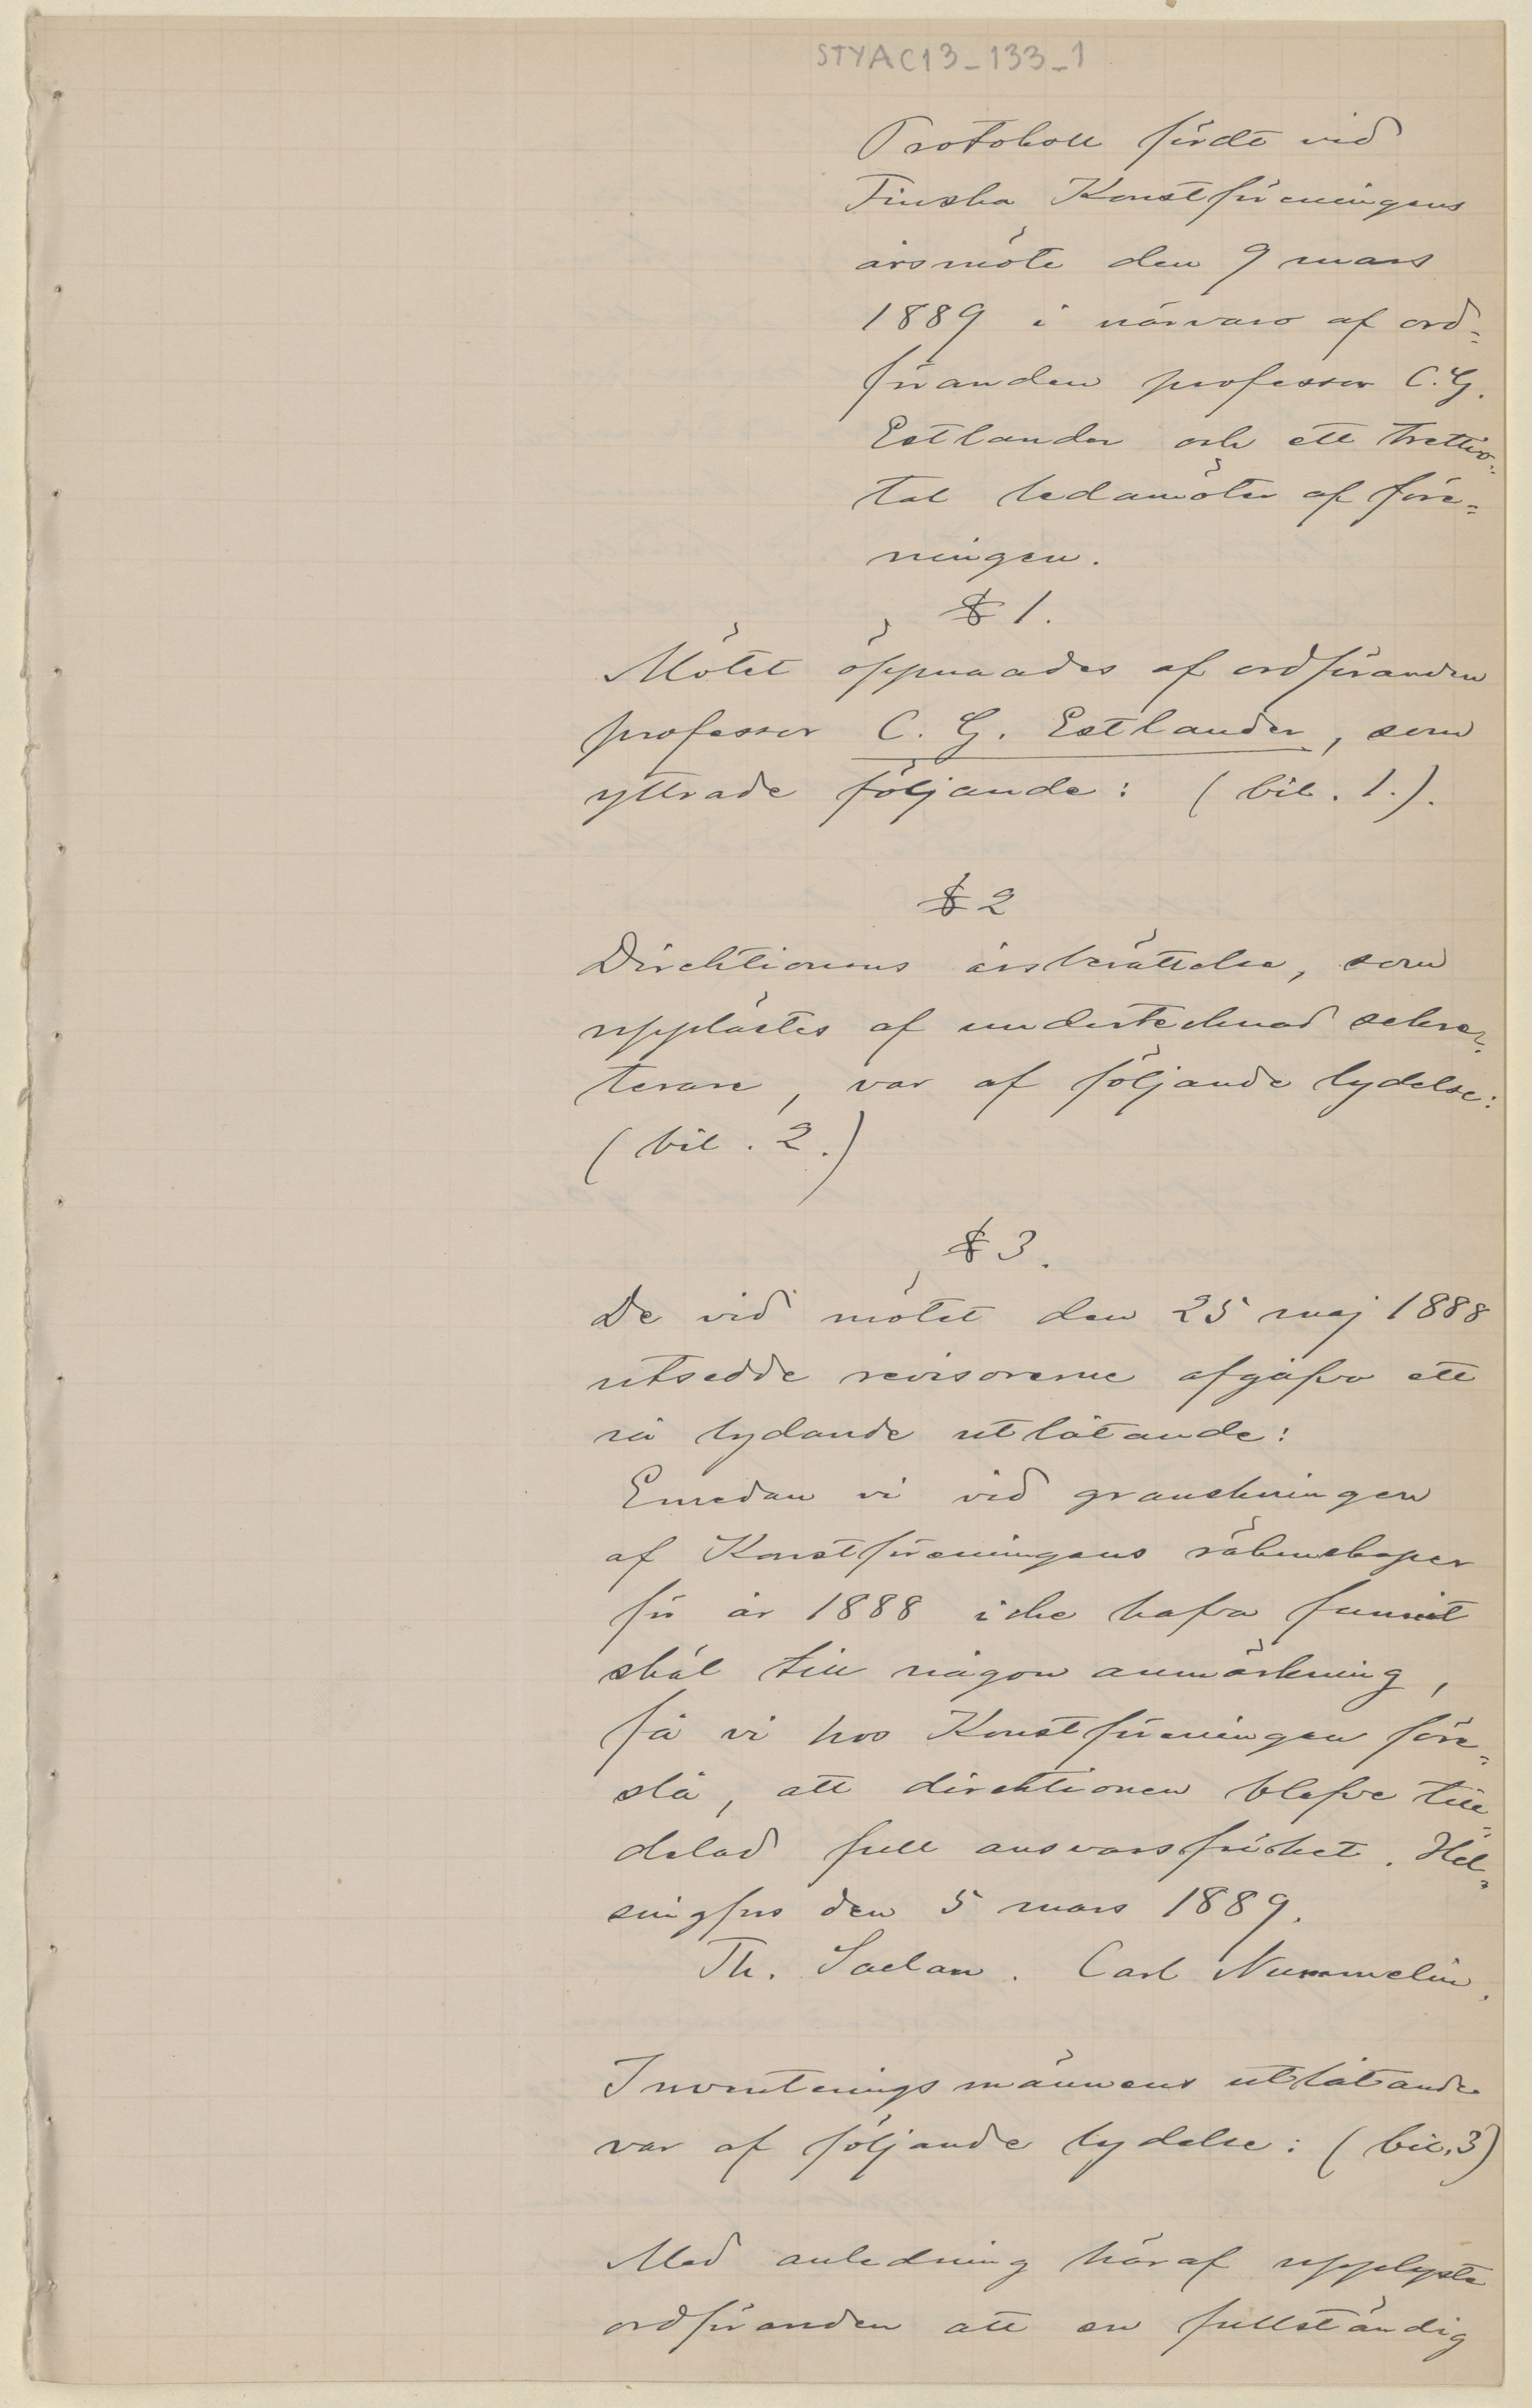 STYAC13_133_1
Protokoll fördt vid
Finska Konstföreningens
årsmöte den 9 mars
1889 i närvaro af ord=
föranden professor C. G.
Estlander och ett trettio=
tal ledamöter af före=
ningen.
§ 1.
Mötet öppnaades af ordföranden
professor C. G. Estlander, som
yttrade följande: (bil. 1.).
§ 2
Direktionens årsberättelse, som
upplästes af undertecknad sekre=
terare, var af följande lydelse:
(bil. 2.)
§ 3.
De vid mötet den 25 maj 1888
utsedde revisorerne afgåfvo ett
så lydande utlåtande:
Emedan vi vid granskningen
af Konstföreningens räkenskaper
för år 1888 icke hafva funnit
skäl till någon anmärkning,
få vi hos Konstföreningen före=
slå, att direktionen blefve till=
delad full ansvarsfrihet. Hel=
singfors den 5 mars 1889.
Th. Saelan. Carl Nummelin.
Inventeringsmännens utlåtande
var af följande lydelse: (bil. 3)
Med anledning häraf upplyste
ordföranden att en fullständig